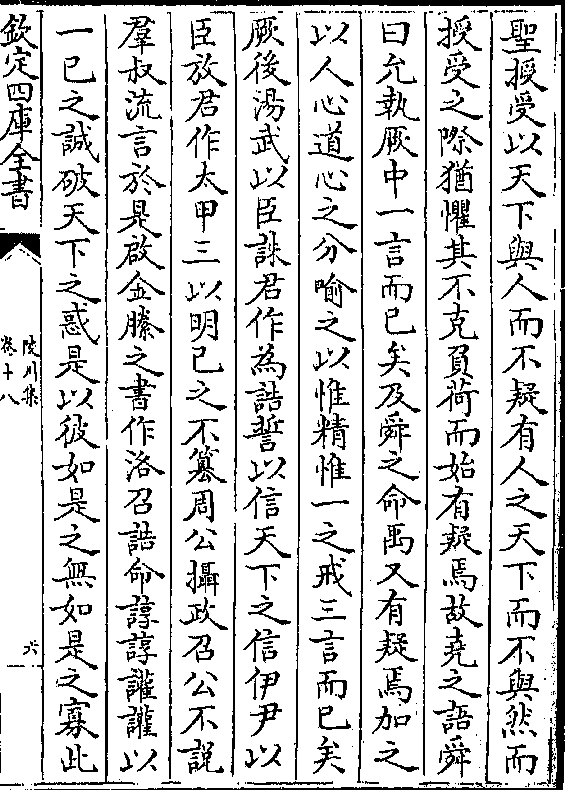 聖授受以天下與人而不疑有人之天下而不與然而
授受之際猶懼其不克負荷而始有疑焉故堯之語舜
曰允執厥中一言而已矣及舜之命禹又有疑焉加之
以人心道心之分喻之以惟精惟一之戒三言而已矣
厥後湯武以臣誅君作為誥誓以信天下之信伊尹以
臣放君作太甲三以明已之不簒周公攝政召公不説
羣叔流言於是啟金縢之書作洛召誥命諄諄讙讙以
一已之誠破天下之惑是以彼如是之無如是之寡此
欽定四庫全書
陵川集
卷十八
六